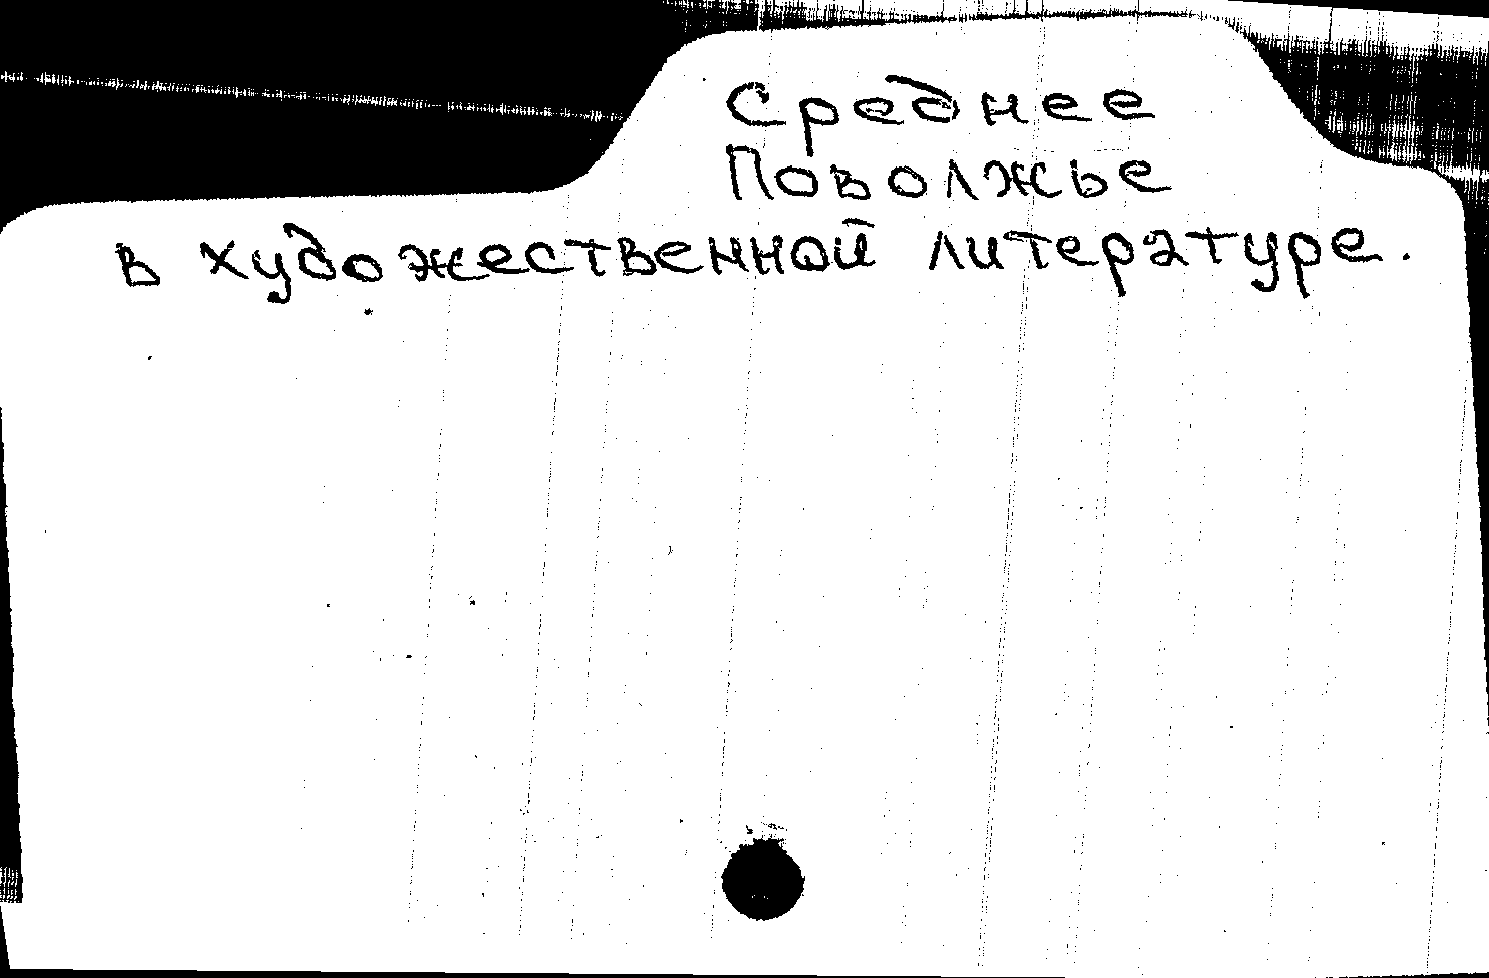 Среднее
Поволжье
в художественной литературе.